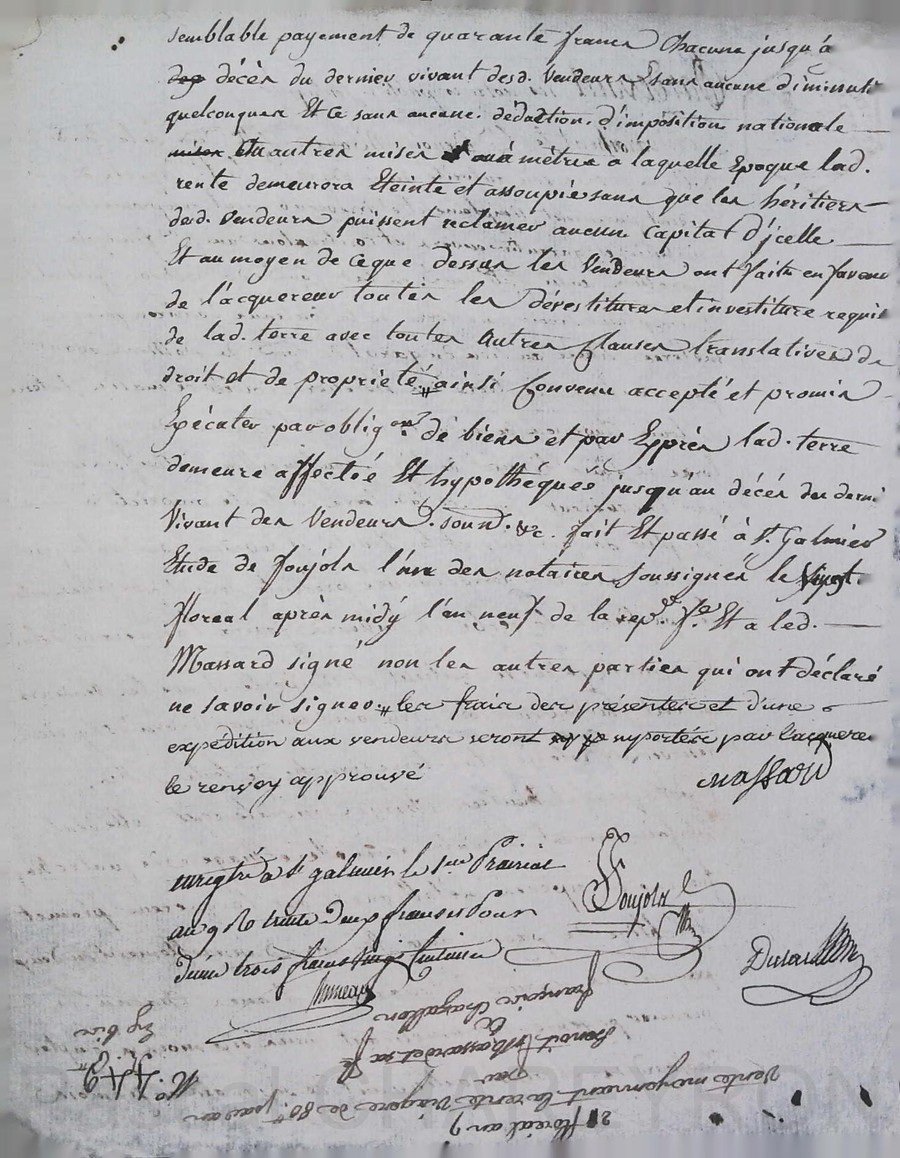 semblable payement de quarante francs Chacune jusqu'à
décès du dernier vivant desd. Vendeurs sans aucune diminuti
quelconques Et Ce sans aucune déduction d'imposition nationale
autres mises a laquelle Epoque lad.
rente demeurera Eteinte et assoupie sans que les héritiers
desd. Vendeurs puissent reclamer aucun Capital d'jcelle
Et au moyen de Ceque dessus les Vendeurs ont faits en faveur
de l'acquereur toutes les dévestitures et investiture requis
de lad. terre avec toutes autres Clauses translatives de
droit et de proprieté ainsi Convenu accepté et promis
Exécuter par oblig.on de biens et par Exprès lad. terre
demeure affectée Et hypothéquée jusqu'au décés du derni
Vivant des Vendeurs. soumd. &c. fait Et passé à St. Galmier
Etude de Joujoln l'un des notaires Soussignés le Vingt
floreal après midy l'an neuf de la rep.e f.e Et a led.
Massard signé non les autres parties qui ont déclaré
ne savoir signer. les frais des présentes et d'une
expédition aux vendeurs seront suportés par l'acquere
le renvoy approuvé
Massard
enregtré a St galmier le 1er Prairial
an 9 trente Deux francs Pour
trois francs vingt Centimes
Joujoln
françois Chazallon
Benoit Massard et sa f
à
par
Vente moyennant la rente Viagere de 80 f par an
21 floréal an 9
No. 449